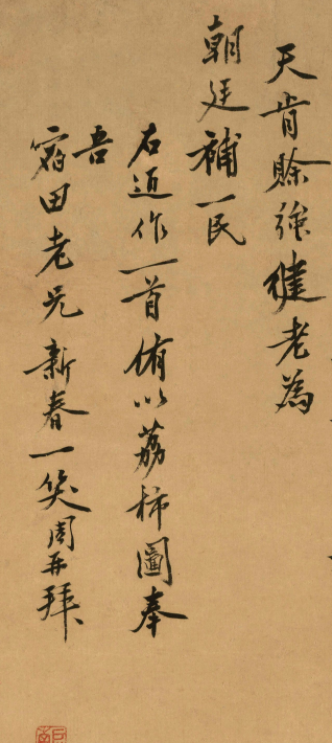 天肯賒強健老為
朝廷補一民
右近作一首侑以荔柿圖奉
吾
宿田老兄新春一笑周再拜